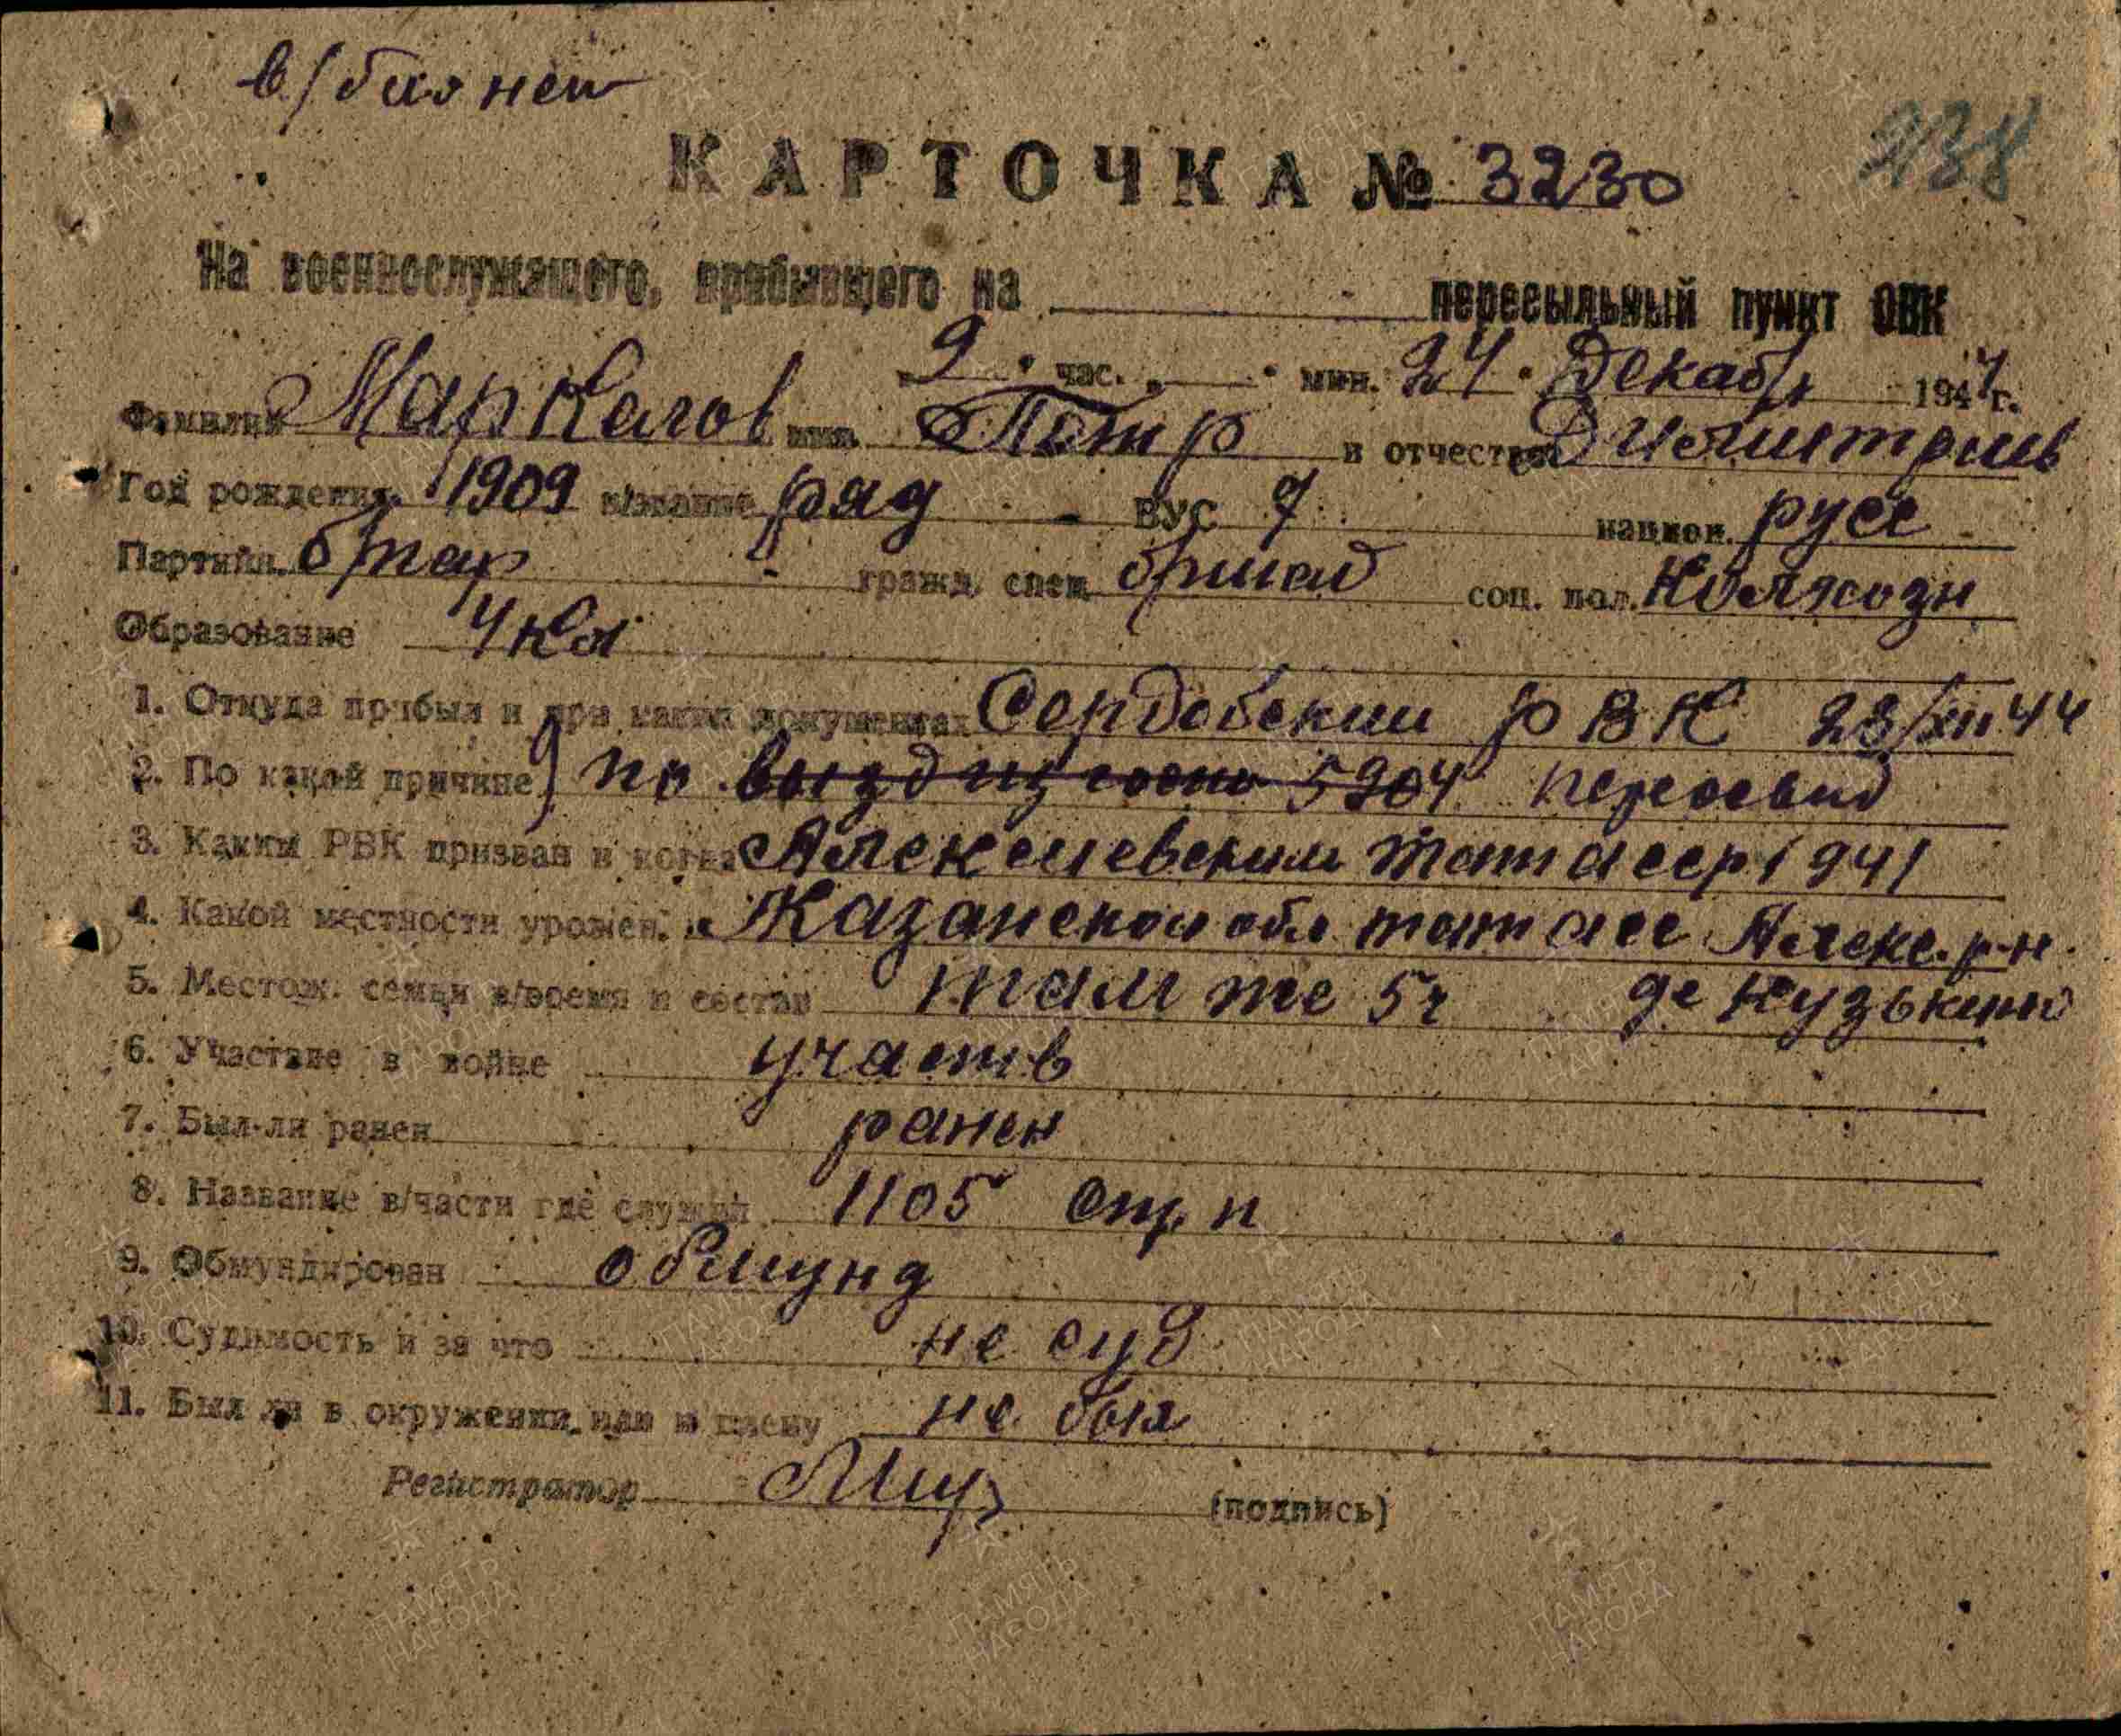 в/бил нет
КАРТОЧКА № 3230
На военнослужащего, прибывшего на пересыльный пункт ОВК
9 час. мин. 24 Декабр 1944 г.
Фамилия Маркелов имя Петр и отчество Димитриев
Год рождения 1909 в/звание ряд ВУС 7 национ. русс
Партийн. б/пар гражд. спец. бригад соц. пол. Колхозн
Образование 4 кл
1. Откуда прибыл и при каких документах Сердобский РВК 23/XII 44
2. По какой причине по 5904 переосвид
3. Каким РВК призван и когда Алексеевским тат асср 1941
4. Какой местности урожен. Казанской обл тат асс Алекс. р-н
5. Местож. семьи в/время и состав там же 5ч де Кузькино
6. Участие в войне участв
7. Был-ли ранен ранен
8. Название в/части где служил 1105 стр. п
9. Обмундирован обмунд
10. Судимость и за что не суд
11. Был ли в окружении или в плену не был
Регистратор (подпись)
ПАМЯТЬ НАРОДА